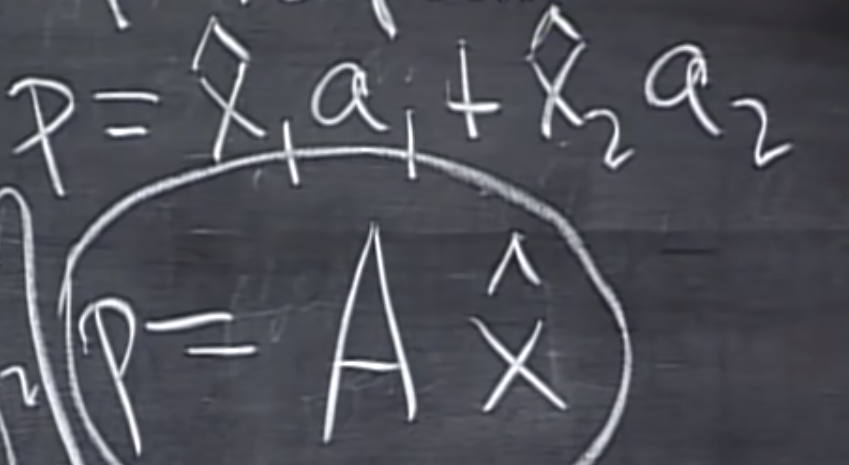 p = x̂₁ a₁ + x̂₂ a₂
p = A x̂